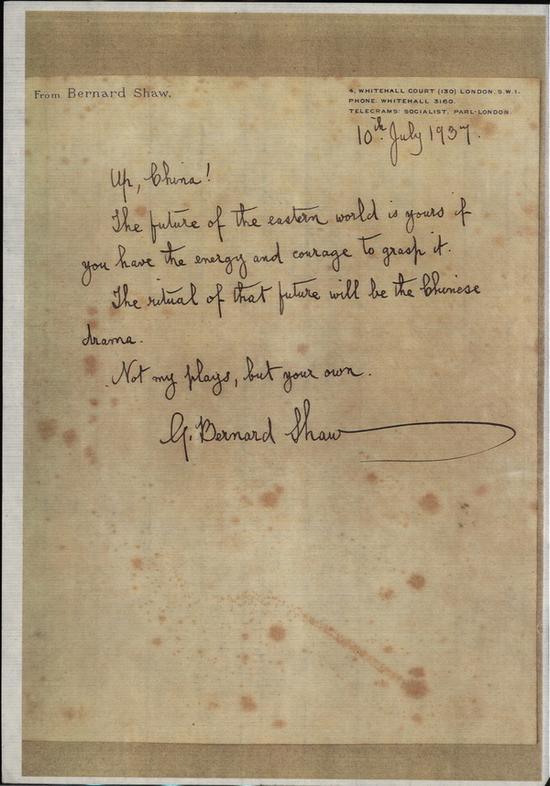 From Bernard Shaw.
4, WHITEHALL COURT (130) LONDON, S.W.1.
PHONE: WHITEHALL 3160.
TELEGRAMS: SOCIALIST, PARL-LONDON.
10th July 1937.
Up, China!
The future of the eastern world is yours if
you have the energy and courage to grasp it.
The ritual of that future will be the Chinese
drama.
Not my plays, but your own.
G. Bernard Shaw